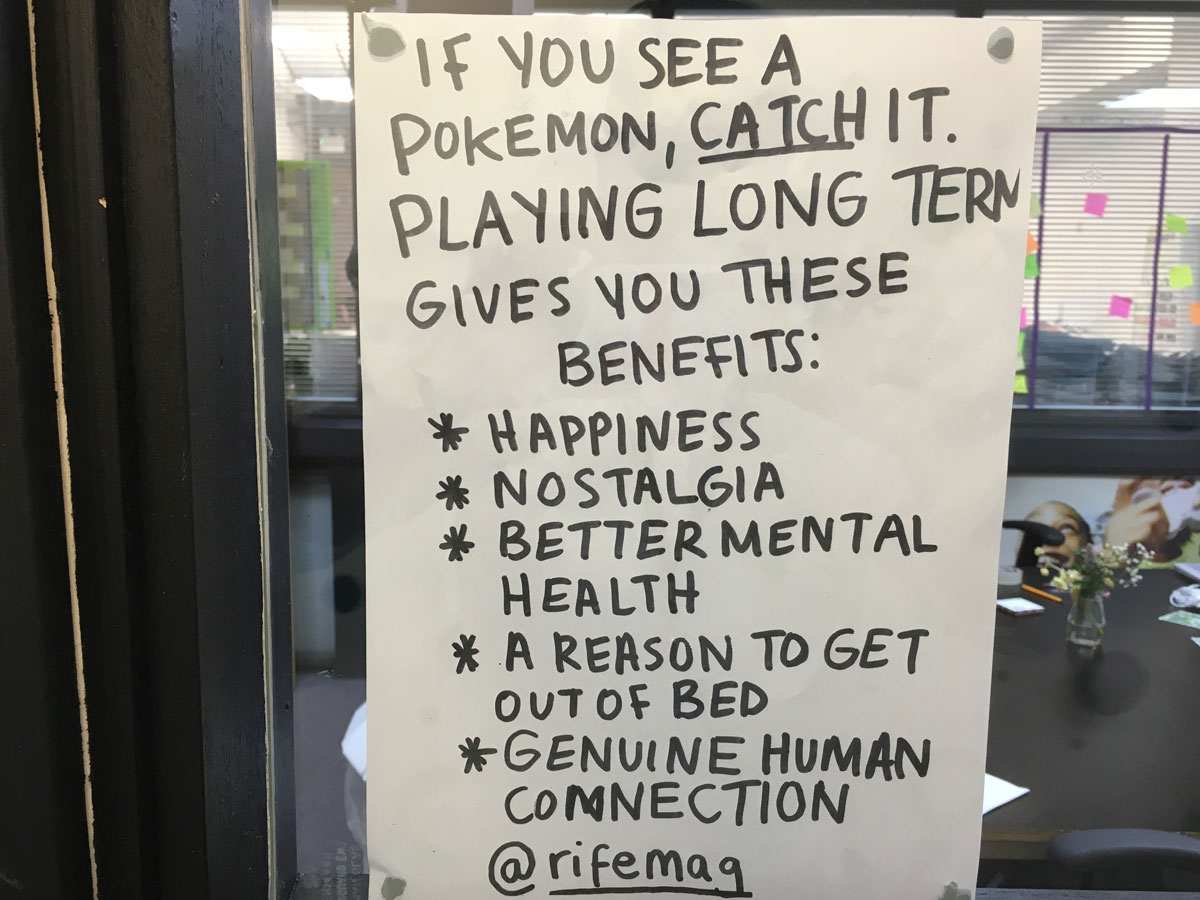 IF YOU SEE A
POKEMON, CATCH IT.
PLAYING LONG TERM
GIVES YOU THESE
BENEFITS:
* HAPPINESS
* NOSTALGIA
* BETTER MENTAL
HEALTH
* A REASON TO GET
OUT OF BED
* GENUINE HUMAN
CONNECTION
@rifemag